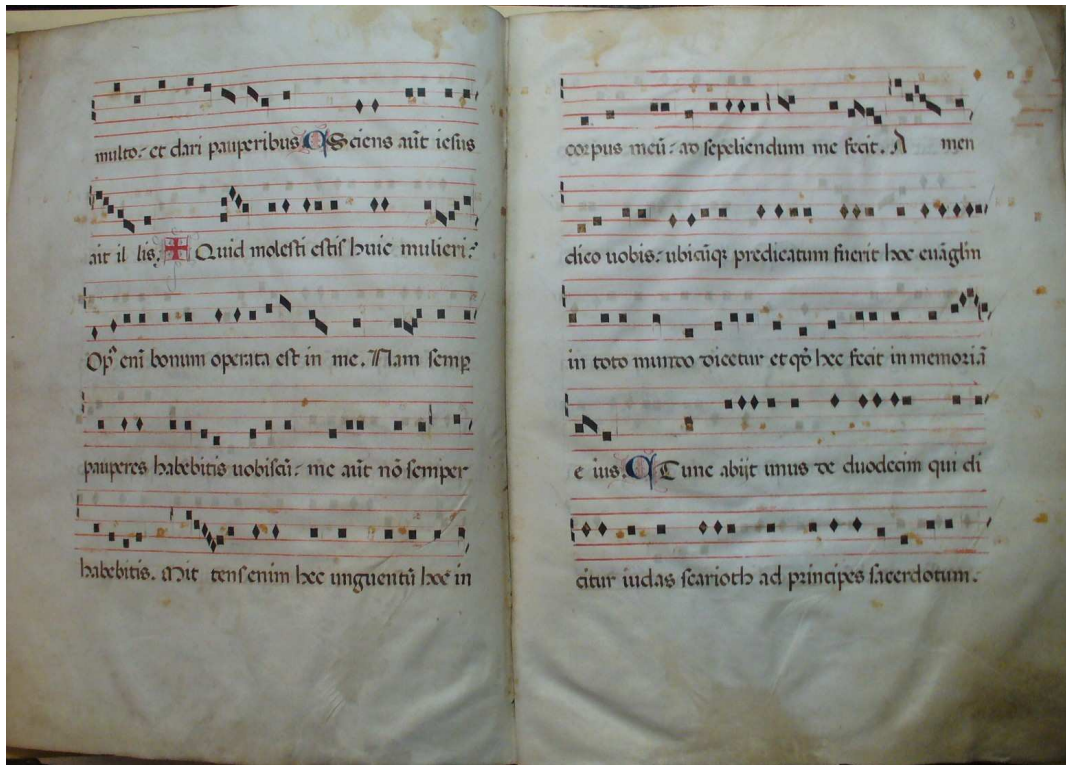 multo: et dari pauperibus Sciens aut̄ iesus
ait il lis. Quid molesti estis huic mulieri:
Op᷒ eni bonum operata est in me. Nam semꝑ
pauperes habebitis uobiscū: me aut̄ nō semper
habebitis. Mit tens enim hec unguentū hoc in
corpus meū: ad sepeliendum me fecit. A men
dico uobis: ubicūqꝫ predicatum fuerit hoc euāgliū
in toto mundo dicetur et qđ hec fecit in memoriā
e ius. Tunc abijt unus de duodecim qui di
citur iudas scarioth ad principes sacerdotum: